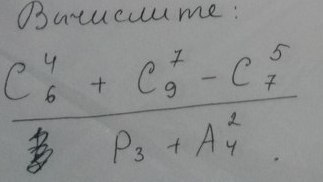 Вычислите:
C₆⁴ + C₉⁷ - C₇⁵
P₃ + A₄².